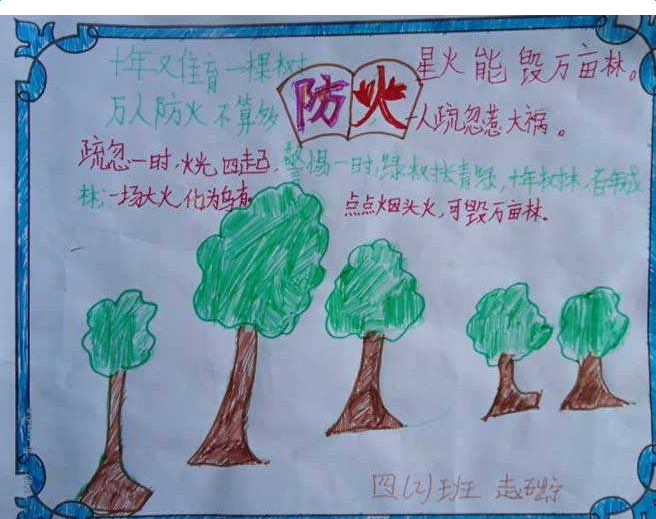 十年又佳育一棵树
星火能毁万亩林。
防火
万人防火不算多
一人疏忽惹大祸。
疏忽一时,火光四起,警惕一时,绿树长青,十年树林,百年成
林,一场大火,化为乌有
点点烟头火,可毁万亩林。
四(2)班